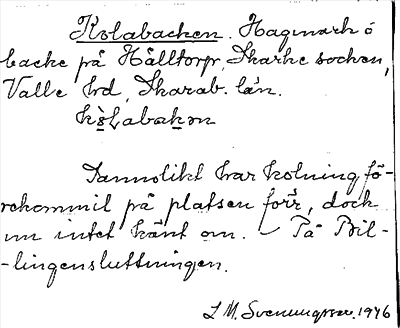 Kolabacken. Hagmark o
backe på Hålltorp, Skarke socken,
Valle hd, Skarab. län.
kò̱Labakən
Sannolikt har kolning fö-
rekommit på platsen förr, doch
nu intet känt om. – På Bil-
-lingensluttningen.
L M. Svenungsson. 1946